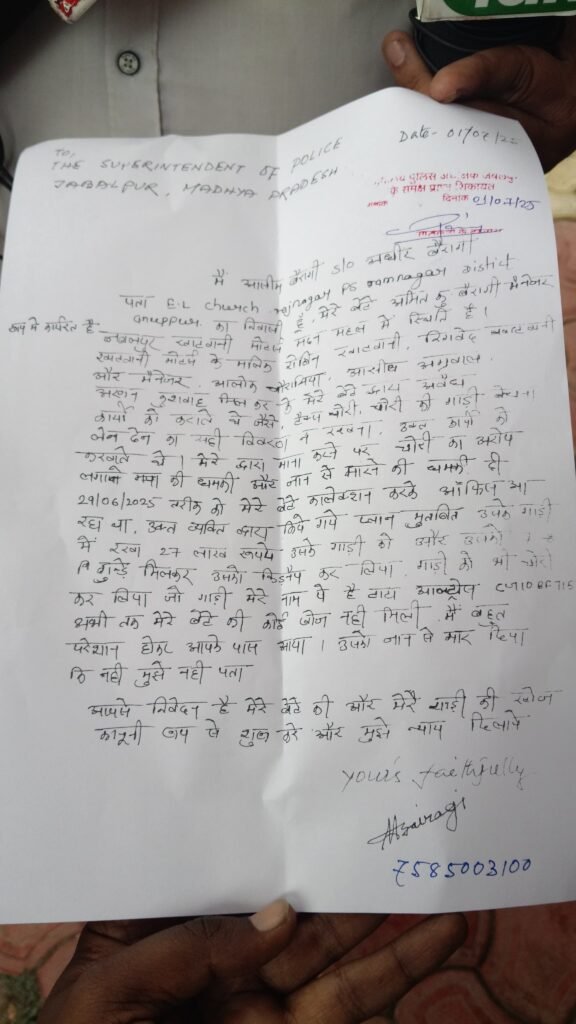 TO,
THE SUPERINTENDENT OF POLICE
JABALPUR, MADHYA PRADESH
Date- 01/07/25
के समक्ष प्रस्तुत शिकायत
दिनांक 01/07/25
मैं बैरागी S/O अधीर बैरागी
पता E.L church rajnagar PS ramnagar District
Anuppur का निवासी हूँ, मेरे बेटे अमित कु बैरागी मैनेजर
रूप मे कार्यरत है
जबलपुर खटवानी मोटर्स मदन महल में स्थित है।
खटवानी मोटर्स के मालिक रोहित खटवानी, खटवानी
और मैनेजर आलोक चौरसिया, आशीष अग्रवाल
कुशवाह मिल कर के मेरे बेटे द्वारा अवैध
कार्यो को कराते थे जैसे, टैक्स चोरी, चोरी की गाड़ी बेचना
लेन देन का सही विवरण न रखना, उक्त कार्यो को
करवाते थे। मेरे द्वारा मना करने पर चोरी का आरोप
लगाने की धमकी और जान से मारने की धमकी दी
29/06/2025 तरीक को मेरे बेटे कलेक्शन करके ऑफिस आ
रहा था, उक्त व्यक्ति द्वारा किये गये प्लान मुताबित उसके गाड़ी
में रखा 27 लाख रूपये उसके गाड़ी को और उसको
गुन्डे मिलकर उसको किडनैप कर लिया, गाड़ी को भी चोरी
कर लिया जो गाड़ी मेरे नाम पे है टाटा CG10BF715
अभी तक मेरे बेटे की कोई खोज नही मिली मैं बहुत
परेशान होकर आपके पास आया। उसको जान से मार दिया
कि नही मुझे नही पता
आपसे निवेदन है मेरे बेटे की और मेरे गाड़ी की खोज
कानूनी रूप से शुरू करे और मुझे न्याय दिलाये
yours faithfully
ABairagi
7585003100